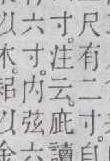 尺有二寸。
寸。注云。庇讀
六寸。内弦六
以木。耜以金